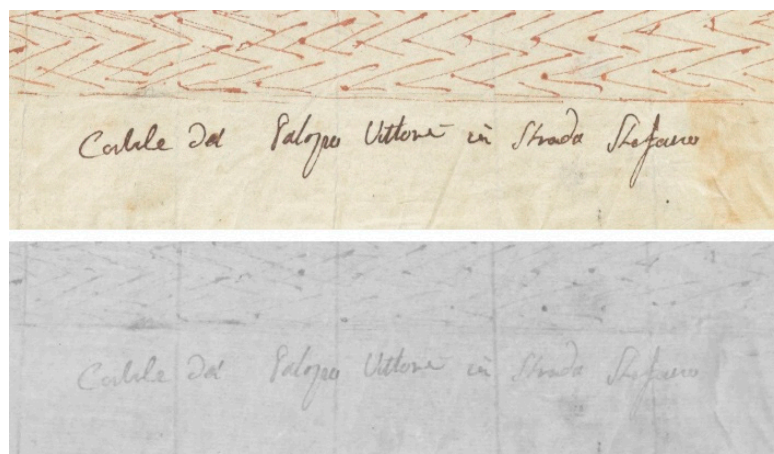 Cortile del Palazzo Vittoni in Strada Stefano
Cortile del Palazzo Vittoni in Strada Stefano